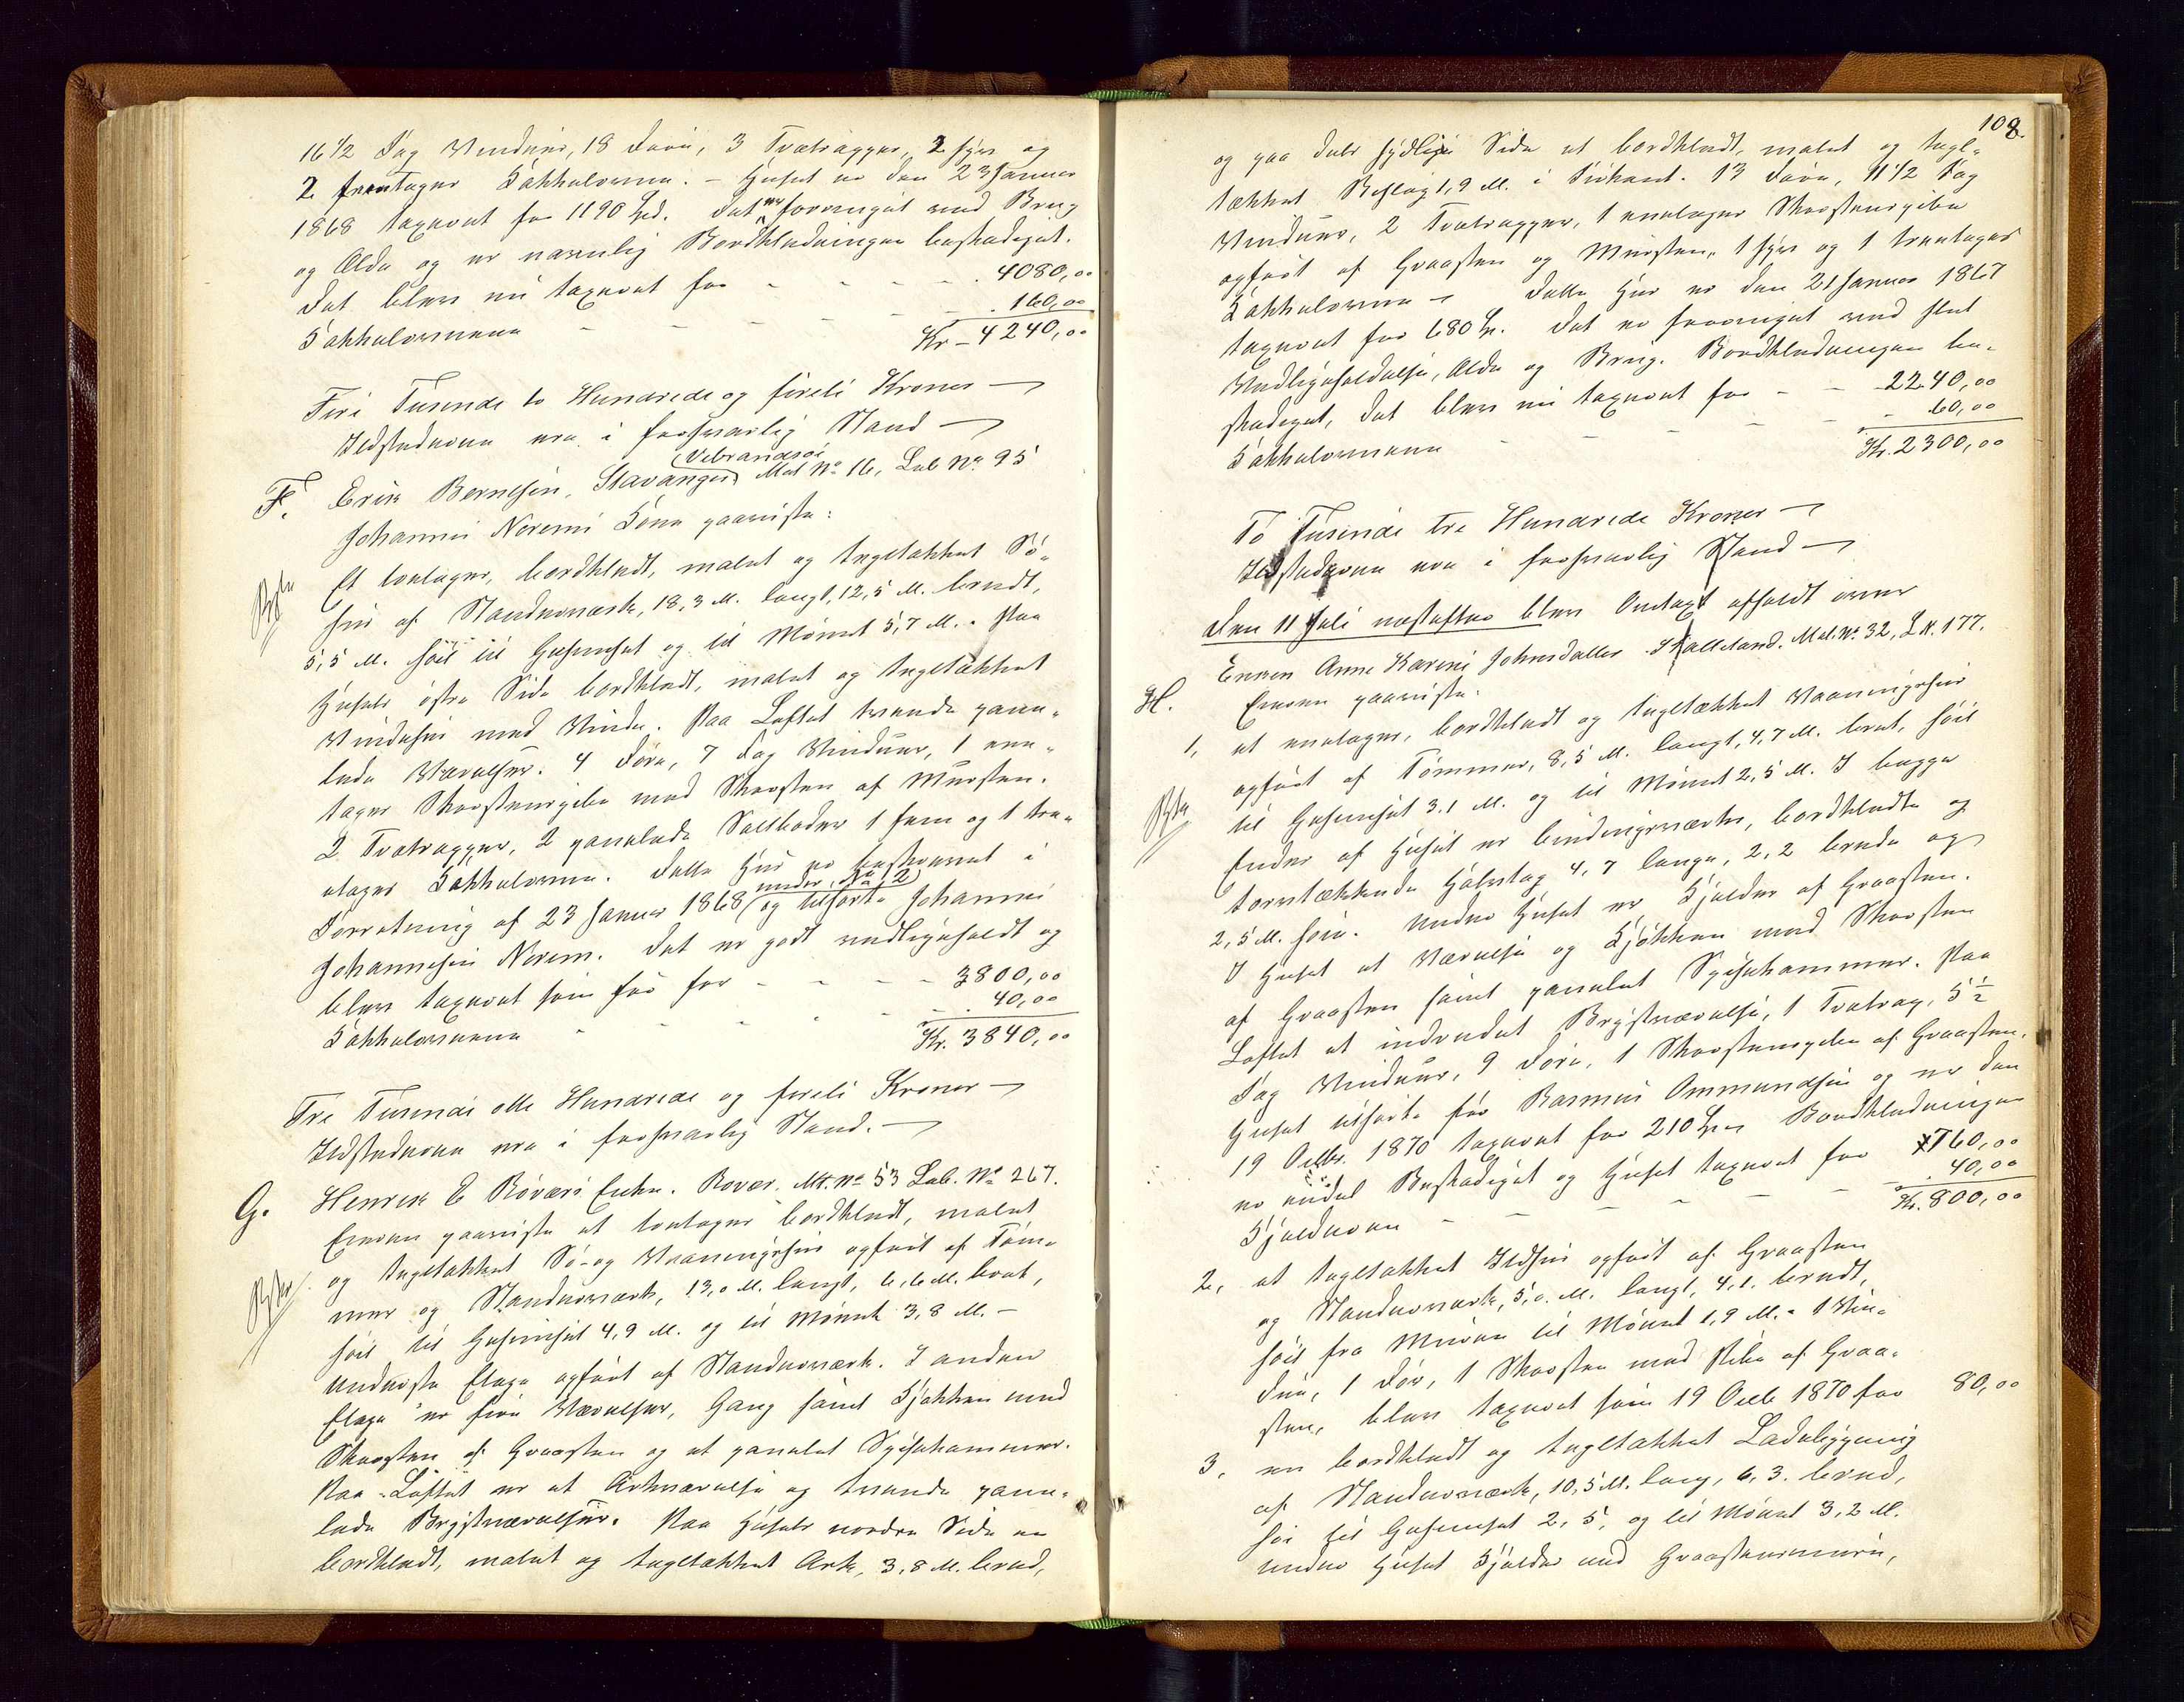 16 1/2 Fag Vinduer, 18 Døre, 3 Trætrapper, 2 fyr og
2 treetages Kakkelovne. – Huset er den 23 Januar
1868 taxeret for 1190 Spd. Det er forringet ved Brug
og Ælde og er navnlig Bordklædningen beskadiget.
Det blev nu taxeret for - - - - 4080,00
Kakkelovnene - - - - - 160,00
Kr – 4240,00
Fire Tusinde to Hundrede og fireti Kroner —
Ildstederne ere i forsvarlig Stand —
Vibrandsøi
F. Erik Berntsen, Stavanger, Mat No 16, Løb No 95
Johannes Norems Søn paaviste:
Et toetages, bordklædt, malet og tegltækket Sø-
hus af Standerværk, 18,3 M. langt, 12,5 M. bredt,
5,5 M. høit til Gesimset og til Mønet 5,7 M. – Paa
Husets østre Side bordklædt, malet og tegltækket
Vindehus med Vinde. Paa Loftet tvende pane-
lede Værelser. 4 Døre, 7 Fag Vinduer, 1 een-
etages Skorstenspibe med Skorsten af Mursten.
2 Trætrapper, 2 panelede Saltboder 1 fem og 1 tre-
etages Kakkelovne. Dette Hus er beskrevet i
under No 2
Forretning af 23 Januar 1868 og tilhørte Johannes
Johannesen Norem. Det er godt vedligeholdt og
blev taxeret som før for - - - - 3800,00
Kakkelovnene - - - - - 40,00
Kr. 3840,00
Tre Tusinde otte Hundrede og fireti Kroner —
Ildstederne ere i forsvarlig Stand. —
G. Henrik E Røværs Enke. Rovær. Mt. No 53 Løb. No 267.
Eieren paaviste et toetages bordklædt, malet
og tegltækket Sø- og Vaaningshus opført af Tøm-
mer og Standerværk, 13,0 M. langt, 6,6 M. bredt,
høit til Gesimset 4,9 M. og til Mønet 3,8 M. –
Underste Etage opført af Standerværk. I anden
Etage er fire Værelser, Gang samt Kjøkken med
Skorsten af Graasten og et panelet Spisekammer.
Paa Loftet er et Arkværelse og tvende pane-
lede Brystværelser. Paa Husets nordre Side en
bordklædt, malet og tegltækket Ark, 3,8 M. bred,
108.
og paa dets sydlige Side et bordklædt, malet og tegl-
tækket Bislag 1,9 M. i Firkant. 13 Døre, 11 1/2 Fag
Vinduer, 2 Trætrapper, 1 eenetages Skorstenspibe
opført af Graasten og Mursten, 1 fyr og 1 treetages
Kakkelovne – Dette Hus er den 21 Januar 1867
taxeret for 680 Sp. Det er forringet ved slet
Vedligeholdelse, Ælde og Brug. Bordklædningen be-
skadiget, det blev nu taxeret for - - 2240,00
Kakkelovnene - - - - - 60,00
Kr. 2300,00
To Tusinde tre Hundrede Kroner —
Ildstederne ere i forsvarlig Stand —
Den 11 Juli næstefter blev Omtaxt afholdt over
Enken Anne Karine Johnsdatter Skalleland. Mat. No 32, L N. 177.
H. Eieren paaviste:
1, et eenetages, bordklædt og tegltækket Vaaningshus
opført af Tømmer, 8,5 M. langt, 4,7 M. bredt, høit
til Gesimset 3.1 M. og til Mønet 2,5 M. I begge
Ender af Huset er bindingsværks, bordklædte og
torvtækkede Halvtag 4,7 lange, 2,2 brede og
2,5 M. høie. Under Huset er Kjelder af Graasten.
I Huset et Værelse og Kjøkken med Skorsten
af Graasten samt panelet Spisekammer. Paa
Loftet et indredet Brystværelse, 1 Trætrap, 5 1/2
Fag Vinduer, 9 Døre, 1 Skorstenspibe af Graasten.
Huset tilhørte før Rasmus Ommundsen og er den
19 Octbr. 1870 taxeret for 210 Sp. – Bordklædningen
er endel Beskadiget og Huset taxeret for 760,00
Kjelderen - - - - - 40,00
Kr. 800,00
2, et tegltækket Ildhus opført af Graasten
og Standerværk, 5,0 M. langt, 4,1. bredt,
høit fra Muren til Mønet 1,9 M. – 1 Vin-
due, 1 Dør, 1 Skorsten med Pibe af Graa-
sten, blev taxeret som 19 Octb 1870 for 80,00
3, en bordklædt og tegltækket Ladebygning
af Standerværk, 10,5 M. lang, 6,3. bred,
høi til Gesimset 2,5, og til Mønet 3,2 M.
under Huset Kjelder med Graastensmure,